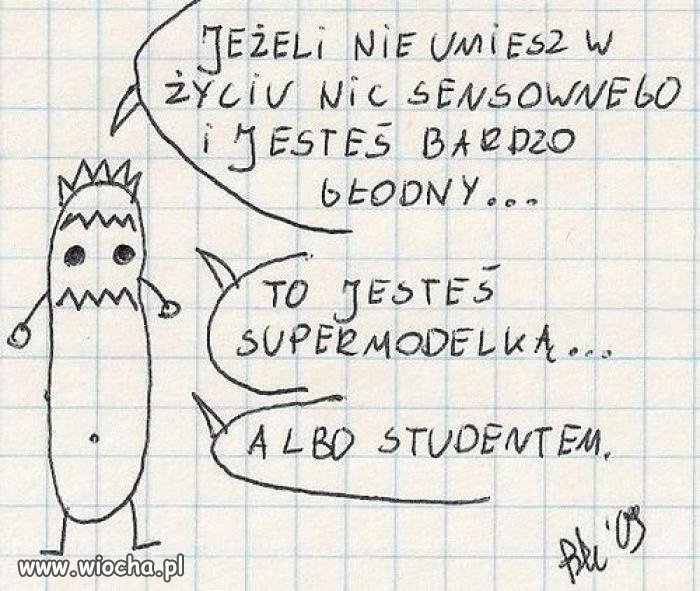 JEŻELI NIE UMIESZ W
ŻYCIU NIC SENSOWNEGO
I JESTEŚ BARDZO
GŁODNY...
TO JESTEŚ
SUPERMODELKĄ...
ALBO STUDENTEM.
'09
www.wiocha.pl